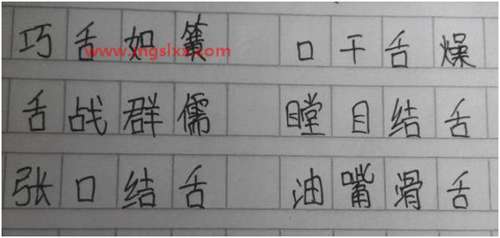 巧舌如簧 口干舌燥
www.mgslxx.com
舌战群儒 瞠目结舌
张口结舌 油嘴滑舌